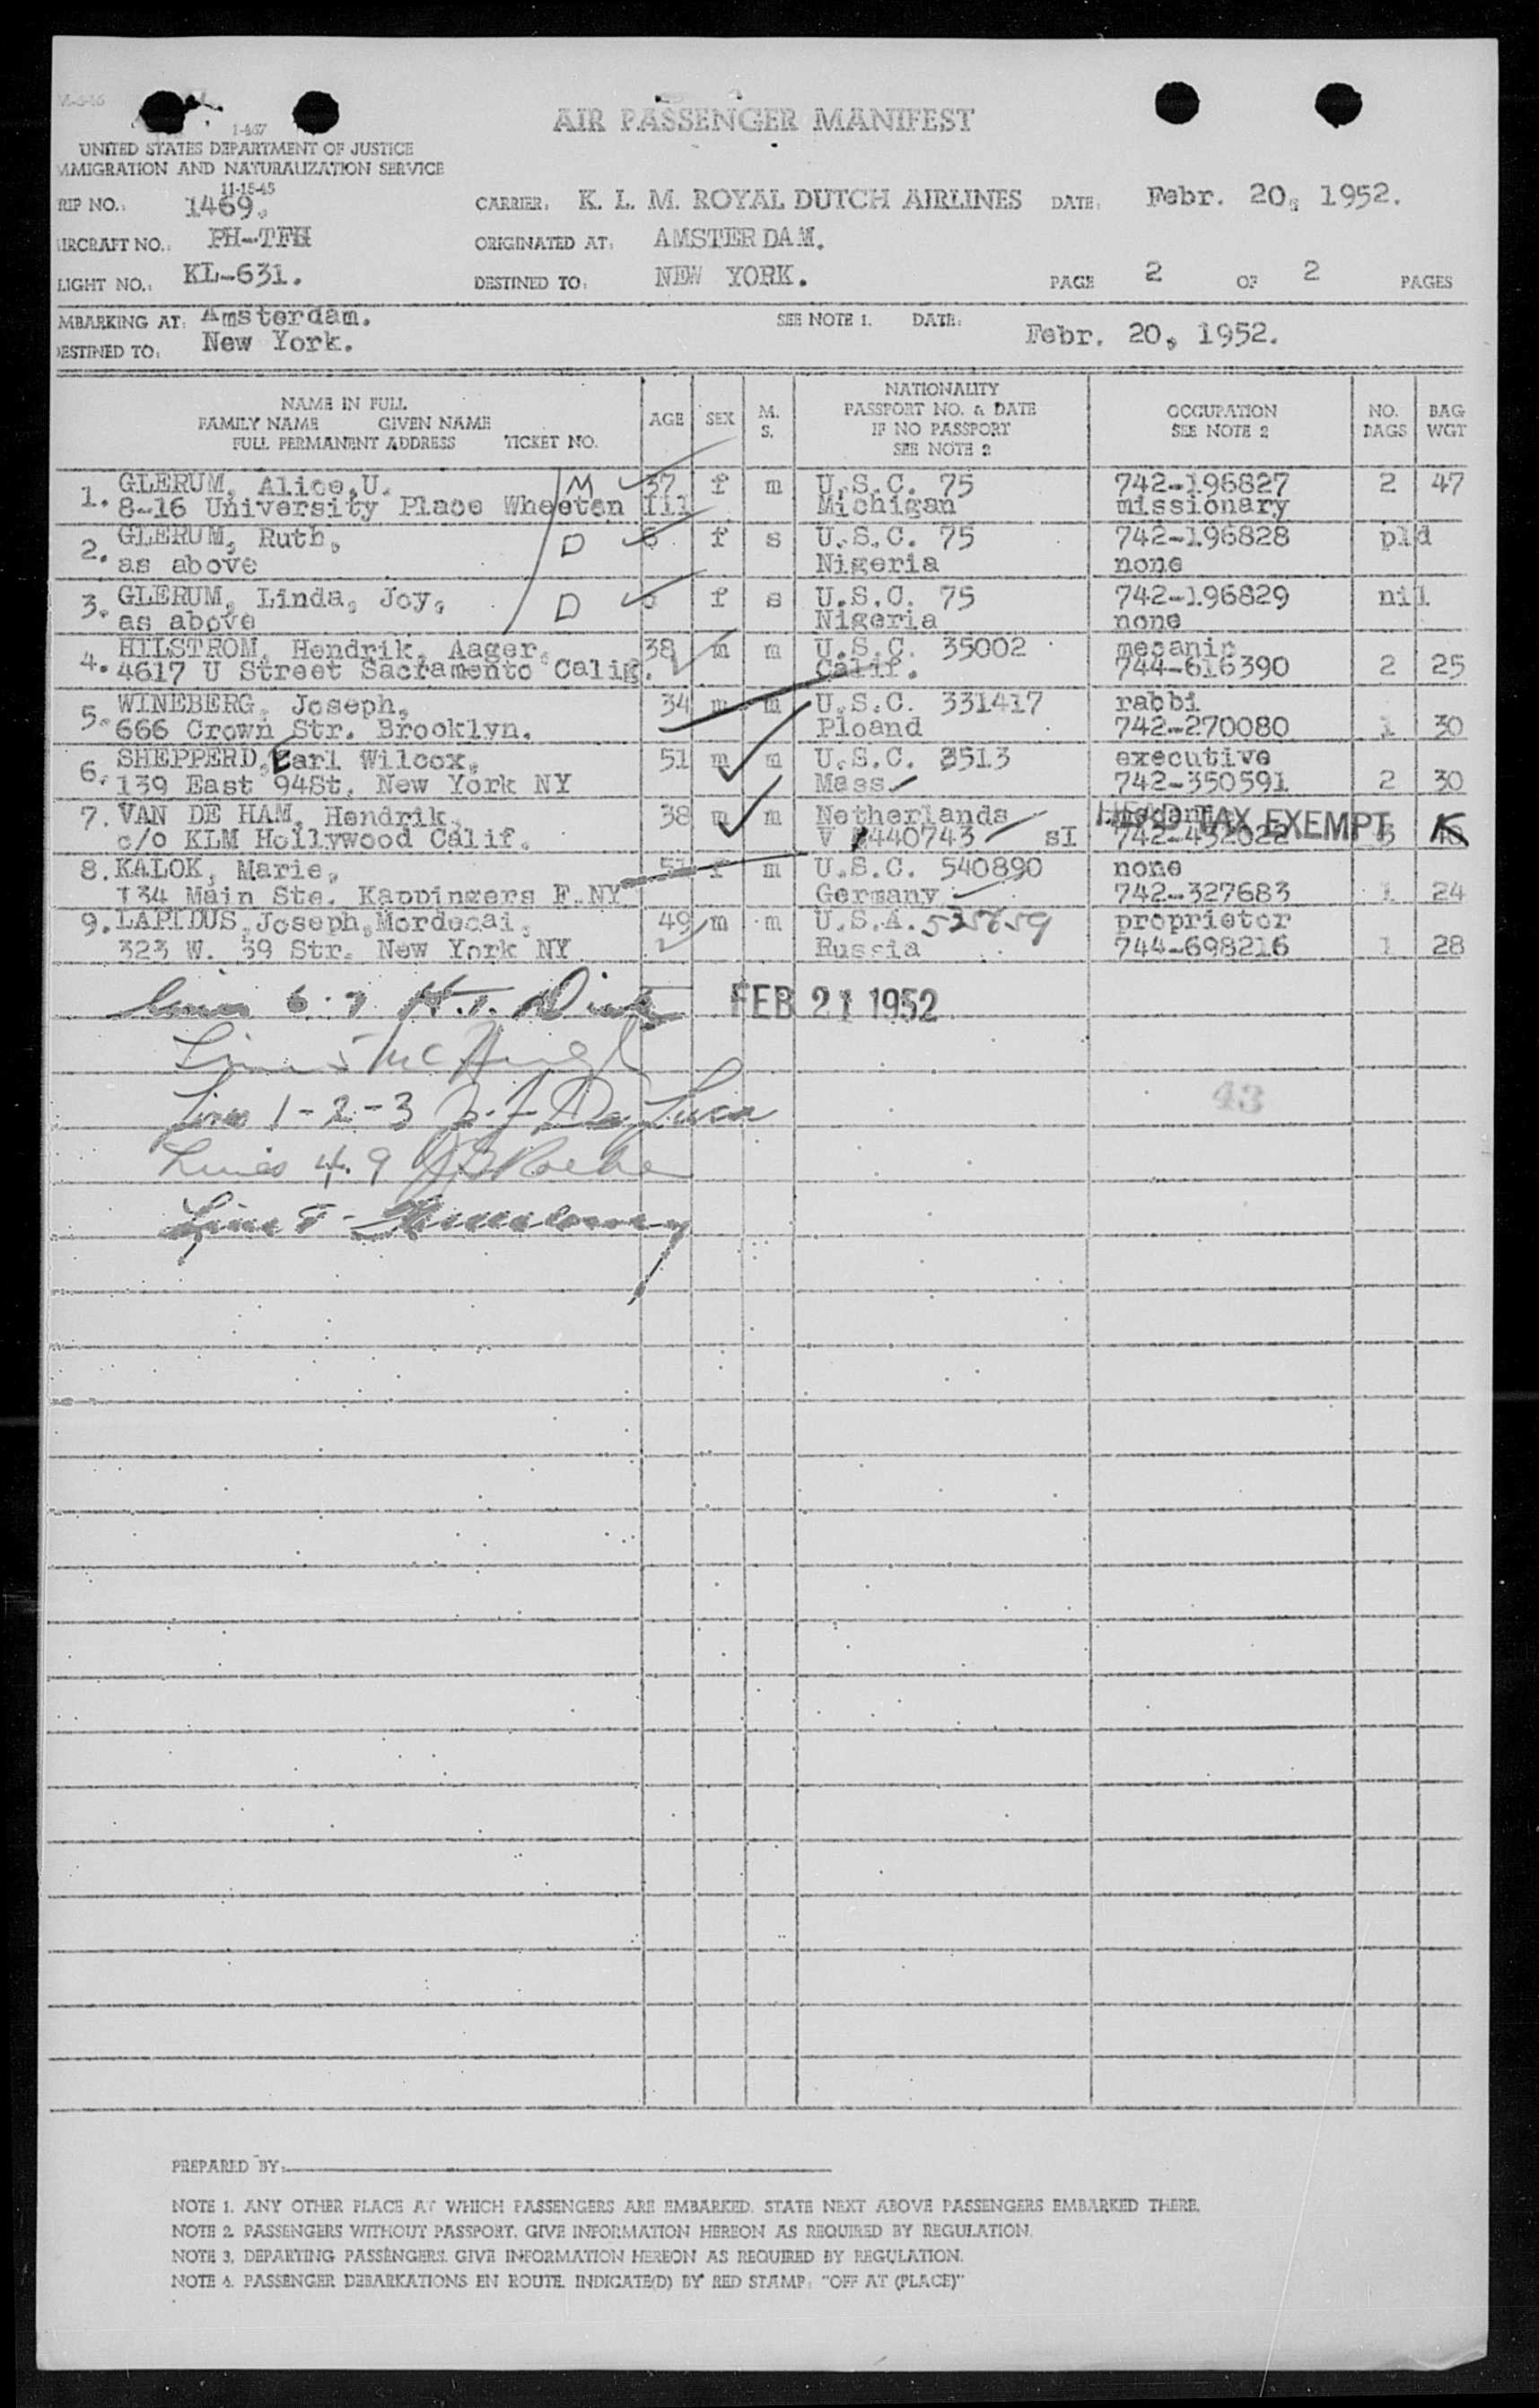 1-467
AIR PASSENGER MANIFEST
UNITED STATES DEPARTMENT OF JUSTICE
MMIGRATION AND NATURALIZATION SERVICE
11-15-45
RIP NO.: 1469. CARRIER: K. L. M. ROYAL DUTCH AIRLINES DATE: Febr. 20, 1952.
IRCRAFT NO.: PH-TFH ORIGINATED AT: AMSTERDAM.
LIGHT NO.: KL-631. DESTINED TO: NEW YORK. PAGE 2 OF 2 PAGES
MBARKING AT: Amsterdam. SEE NOTE 1. DATE: Febr. 20, 1952.
ESTINED TO: New York.
NAME IN FULL
FAMILY NAME GIVEN NAME
FULL PERMANENT ADDRESS TICKET NO.
AGE SEX M. S.
NATIONALITY
PASSPORT NO. & DATE
IF NO PASSPORT
SEE NOTE 2
OCCUPATION
SEE NOTE 2
NO. BAGS
BAG WGT
1. GLERUM, Alice,U. M 37 f m U.S.C. 75 742-196827 2 47
8-16 University Place Wheeten Ill Michigan missionary
2. GLERUM, Ruth, D f s U.S.C. 75 742-196828 pld
as above Nigeria none
3. GLERUM, Linda, Joy, D f s U.S.C. 75 742-196829 nil
as above Nigeria none
4. HILSTROM, Hendrik, Aager, 38 m m U.S.C. 35002 mecanic
4617 U Street Sacramento Calif. Calif. 744-616390 2 25
5. WINEBERG, Joseph, 34 m m U.S.C. 331417 rabbi
666 Crown Str. Brooklyn. Ploand 742-270080 1 30
6. SHEPPERD, Earl Wilcox, 51 m m U.S.C. 3513 executive
139 East 94St, New York NY Mass 742-350591 2 30
7. VAN DE HAM, Hendrik, 38 m m Netherlands HEAD TAX EXEMPT
c/o KLM Hollywood Calif. V 440743 sI 742-452022 3
8. KALOK, Marie, 51 f m U.S.C. 540890 none
134 Main Ste. Kappingers F.NY Germany 742-327683 1 24
9. LAPIDUS, Joseph,Mordecai, 49 m m U.S.A. 535659 proprietor
323 W. 39 Str. New York NY Russia 744-698216 1 28
FEB 21 1952
Line 5
43
Line 1-2-3 De Luca
Lines 4.9
Line
PREPARED BY:
NOTE 1. ANY OTHER PLACE AT WHICH PASSENGERS ARE EMBARKED. STATE NEXT ABOVE PASSENGERS EMBARKED THERE.
NOTE 2. PASSENGERS WITHOUT PASSPORT, GIVE INFORMATION HEREON AS REQUIRED BY REGULATION.
NOTE 3. DEPARTING PASSENGERS. GIVE INFORMATION HEREON AS REQUIRED BY REGULATION.
NOTE 4. PASSENGER DEBARKATIONS EN ROUTE. INDICATE(D) BY RED STAMP: "OFF AT (PLACE)"